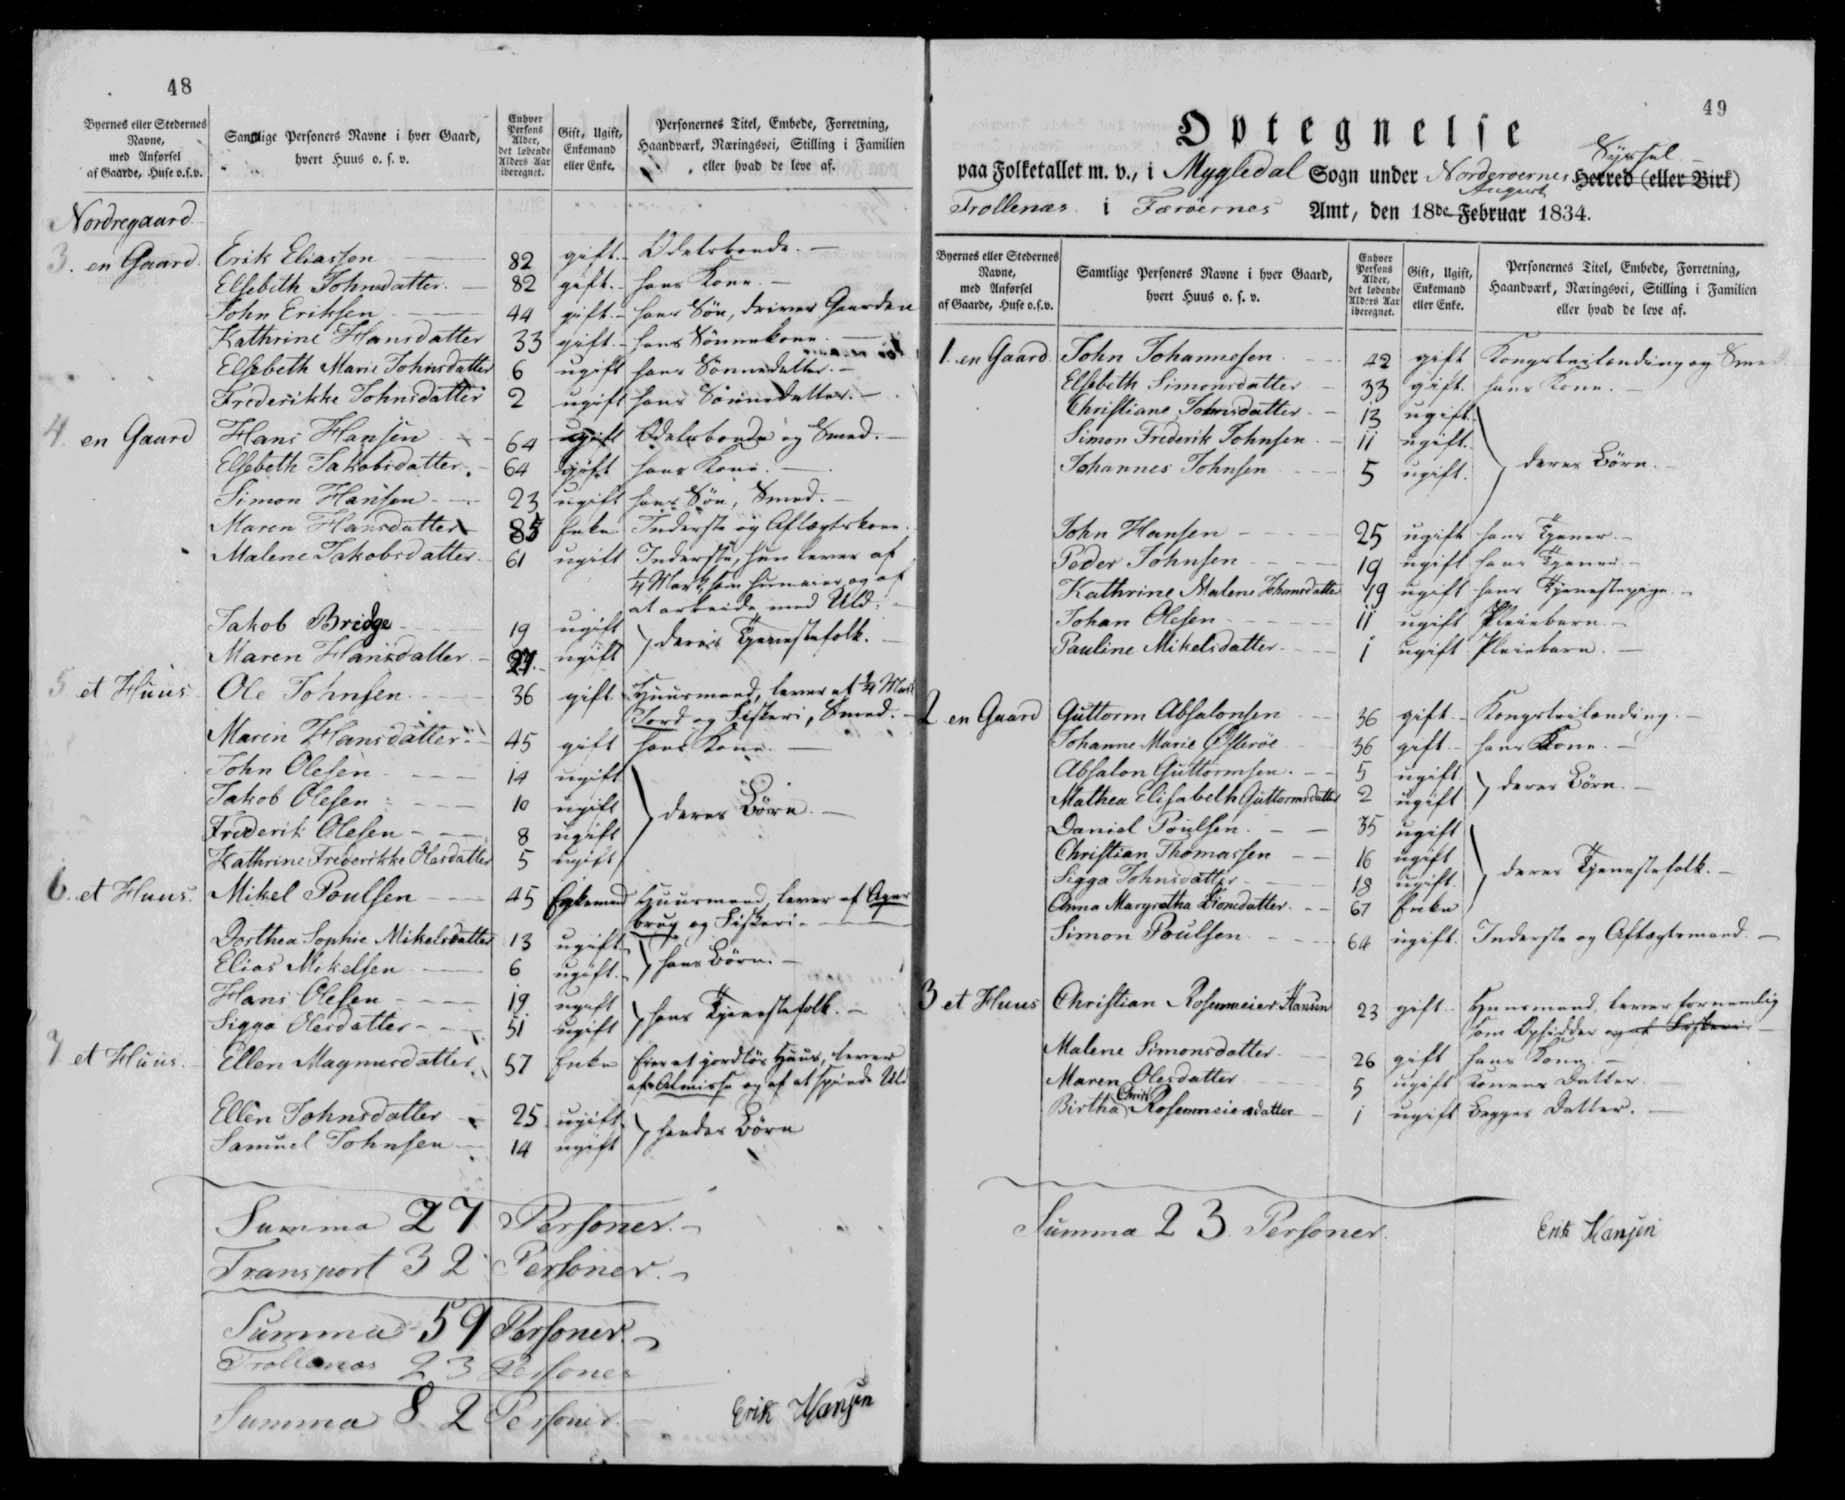 48
Byernes eller Stedernes Navne, med Anførsel af Gaarde, Huse o.s.v. | Samtlige Personers Navne i hver Gaard, hvert Huus o. s. v. | Enhver Persons Alder, det løbende Alders Aar iberegnet. | Gift, Ugift, Enkemand eller Enke. | Personernes Titel, Embede, Forretning, Haandværk, Næringsvei, Stilling i Familien eller hvad de leve af.
Nordregaard
3. en Gaard Erik Eliassen 82 gift Odelsbonde.
Elsebeth Johnsdatter 82 gift hans Kone.
John Eriksen 44 gift hans Søn, driver Gaarden
Kathrine Hansdatter 33 gift hans Sønnekone
Elsebeth Marie Johnsdatter 6 ugift hans Sønnedatter.
Frederikke Johnsdatter 2 ugift hans Sønnedatter.
4. en Gaard Hans Hansen 64 gift Odelsbonde og Smed.
Elsebeth Jakobsdatter 64 gift hans Kone.
Simon Hansen 23 ugift hans Søn, Smed.
Maren Hansdatter 85 Enke Inderste og Aftægtskone.
Malene Jakobsdatter 61 ugift Inderste, hun lever af
¼ Mark, som hun eier, og af
at arbeide med Uld.
Jakob Bridge 19 ugift } deres Tjenestefolk.
Maren Hansdatter 27 ugift
5 et Huus Ole Johnsen 36 gift Huusmand, lever af ¼ Mark
Jord og Fiskeri, Smed.
Maren Hansdatter 45 gift hans Kone.
John Olesen 14 ugift
Jakob Olesen 10 ugift } deres Børn.
Frederik Olesen 8 ugift
Kathrine Frederikke Olesdatter 5 ugift
6. et Huus. Mikel Poulsen 45 Enkemand Huusmand, lever af Ager
brug og Fiskeri.
Dorthea Sophie Mikelsdatter 13 ugift } hans Børn.
Elias Mikelsen 6 ugift
Hans Olesen 19 ugift } hans Tjenestefolk.
Sigga Olesdatter 51 ugift
7 et Huus. Ellen Magnusdatter 57 Enke Eier et jordløs Huus, lever
af Almisse og af at spinde Uld
Ellen Johnsdatter 25 ugift } hendes Børn
Samuel Johnsen 14 ugift
Summa 27 Personer.
Transport 32 Personer.
Summa 59 Personer.
Trollenæs 23 Personer
Summa 82 Personer.
Erik Hansen
49
Optegnelse
Syssel
paa Folketallet m. v., i Mygledal Sogn under Norderøernes Herred (eller Birk)
August
Trollenæs i Færöernes Amt, den 18de Februar 1834.
Byernes eller Stedernes Navne, med Anførsel af Gaarde, Huse o.s.v. | Samtlige Personers Navne i hver Gaard, hvert Huus o. s. v. | Enhver Persons Alder, det løbende Alders Aar iberegnet. | Gift, Ugift, Enkemand eller Enke. | Personernes Titel, Embede, Forretning, Haandværk, Næringsvei, Stilling i Familien eller hvad de leve af.
1. en Gaard John Johannesen 42 gift Kongsleilænding og Smed
Elsebeth Simonsdatter 33 gift hans Kone.
Christiane Johnsdatter 13 ugift
Simon Frederik Johnsen 11 ugift } deres Børn.
Johannes Johnsen 5 ugift
John Hansen 25 ugift hans Tjener
Peder Johnsen 19 ugift hans Tjener
Kathrine Malene Johansdatter 19 ugift hans Tjenestepige.
Johan Olesen 11 ugift Pleiebarn
Pauline Mikelsdatter 1 ugift Pleiebarn.
2 en Gaard Guttorm Absalonsen 36 gift Kongsleilænding.
Johanne Marie Østerøe 36 gift hans Kone.
Absalon Guttormsen 5 ugift } deres Børn.
Mathea Elisabeth Guttormsdatter 2 ugift
Daniel Poulsen 35 ugift
Christian Thomassen 16 ugift } deres Tjenestefolk.
Sigga Johnsdatter 18 ugift
Anna Margretha Simonsdatter 67 Enke
Simon Poulsen 64 ugift Inderste og Aftægtsmand
3 et Huus Christian Rosenmeier Hansen 23 gift Huusmand, lever fornemlig
som Opsidder og af Fiskeri
Malene Simonsdatter 26 gift hans Kone
Maren Olesdatter 5 ugift Konens Datter
Birtha Christ Rosenmeiersdatter 1 ugift Begges Datter.
Summa 23 Personer.
Erik Hansen